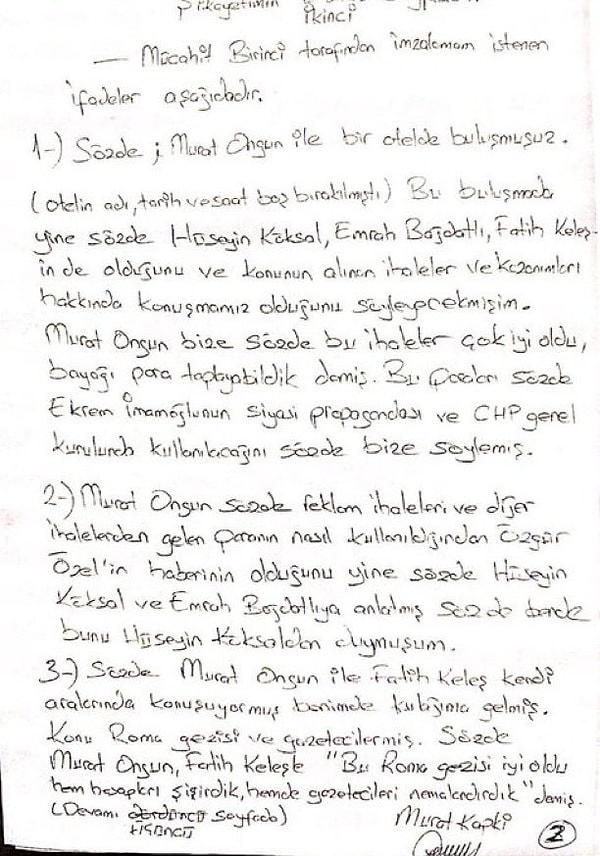 Şikayetimin
İkinci
— Mücahit Birinci tarafından imzalamam istenen
ifadeler aşağıdadır.
1-) Sözde ; Murat Ongun ile bir otelde buluşmuşuz.
(otelin adı, tarih ve saat boş bırakılmıştı) Bu buluşmada
yine sözde Hüseyin Köksal, Emrah Bağdatlı, Fatih Keleş-
in de olduğunu ve konunun alınan ihaleler ve kazanımları
hakkında konuşmamız olduğunu söyleyecekmişim.
Murat Ongun bize sözde bu ihaleler çok iyi oldu,
bayağı para toplayabildik demiş. Bu paraları sözde
Ekrem İmamoğlunun siyasi propagandası ve CHP genel
kurulunda kullanılacağını sözde bize söylemiş.
2-) Murat Ongun sözde reklam ihaleleri ve diğer
ihalelerden gelen paranın nasıl kullanıldığından Özgür
Özel'in haberinin olduğunu yine sözde Hüseyin
Köksal ve Emrah Bağdatlıya anlatmış sözde bende
bunu Hüseyin Köksaldan duymuşum.
3-) Sözde Murat Ongun ile Fatih Keleş kendi
aralarında konuşuyormuş benimde kulağıma gelmiş.
Konu Roma gezisi ve gazetecilermiş. Sözde
Murat Ongun, Fatih Keleşe "Bu Roma gezisi iyi oldu
hem hesapları şişirdik, hemde gazetecileri nemalandırdık" demiş.
(Devamı dördüncü sayfada) Murat Kapki
üçüncü 2